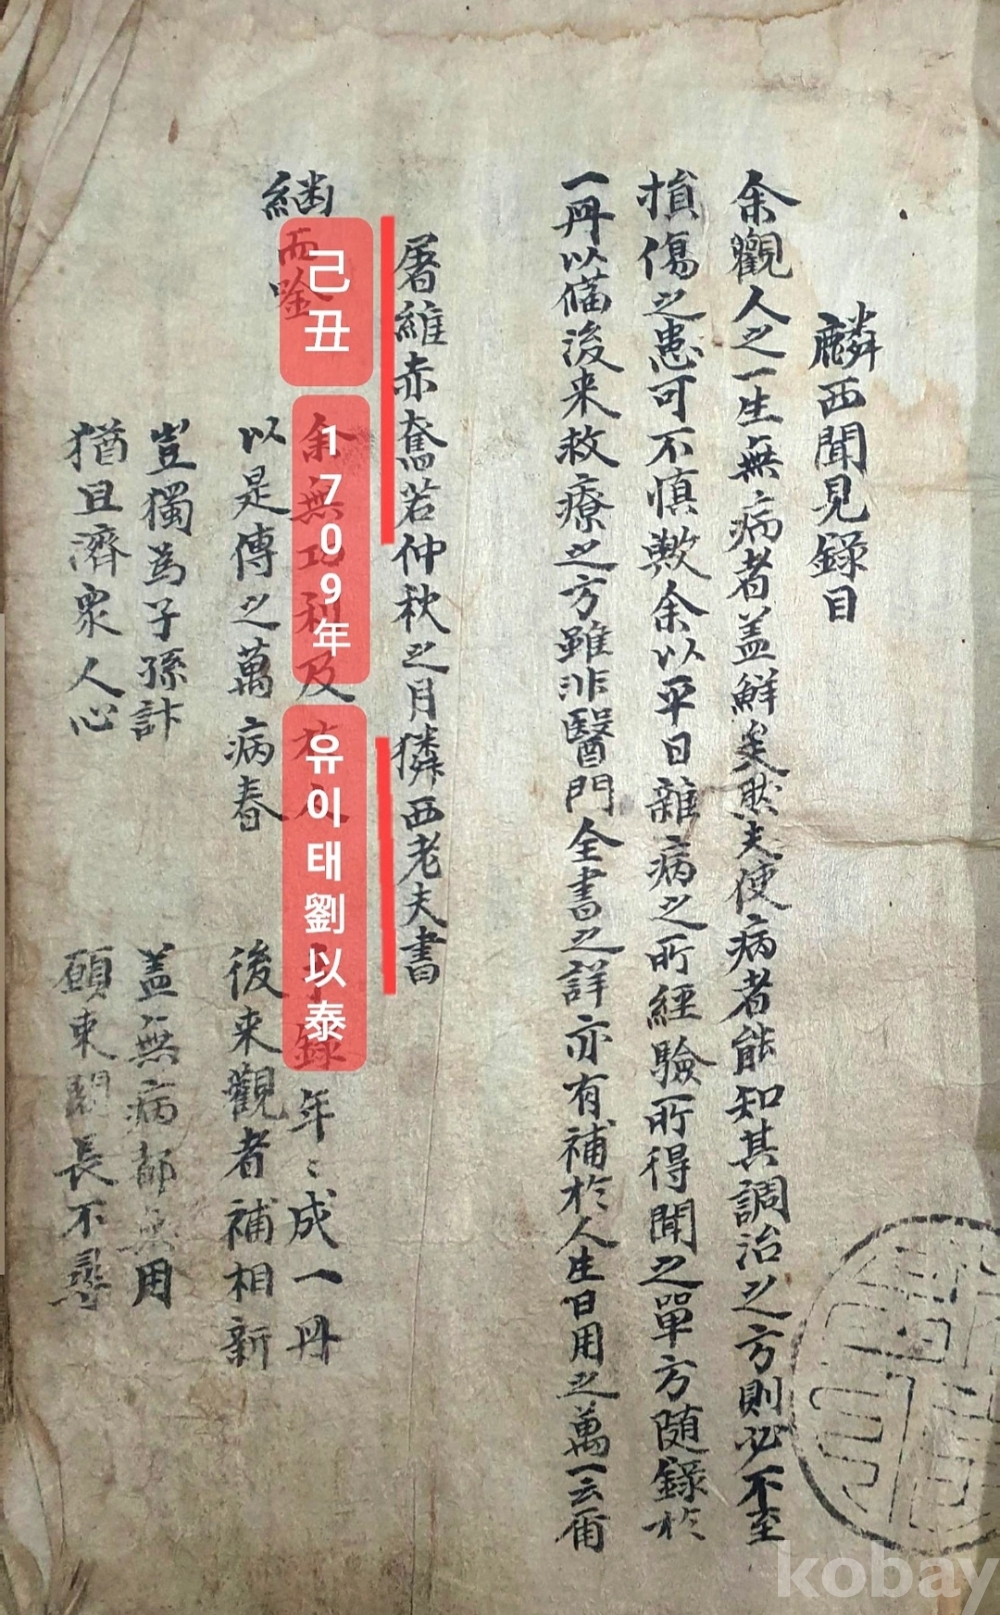 麟西聞見錄目
余觀人之一生無病者盖鮮矣然夫使病者能知其調治之方則必不至
損傷之患可不愼歟余以平日雜病之所經驗所得聞之單方随錄於
一冊以備後来救療之方雖非醫門全書之詳亦有補於人生日用之萬一云爾
屠維赤奮若仲秋之月獜西老夫書
繼而唫
余無功利及於人 錄年〻成一冊
以是傳之萬病春 後来觀者補相新
豈獨爲子孫計 盖無病部無用
猶且濟衆人心 願東 長不尋
己丑
1709年
유이태劉以泰
kobay